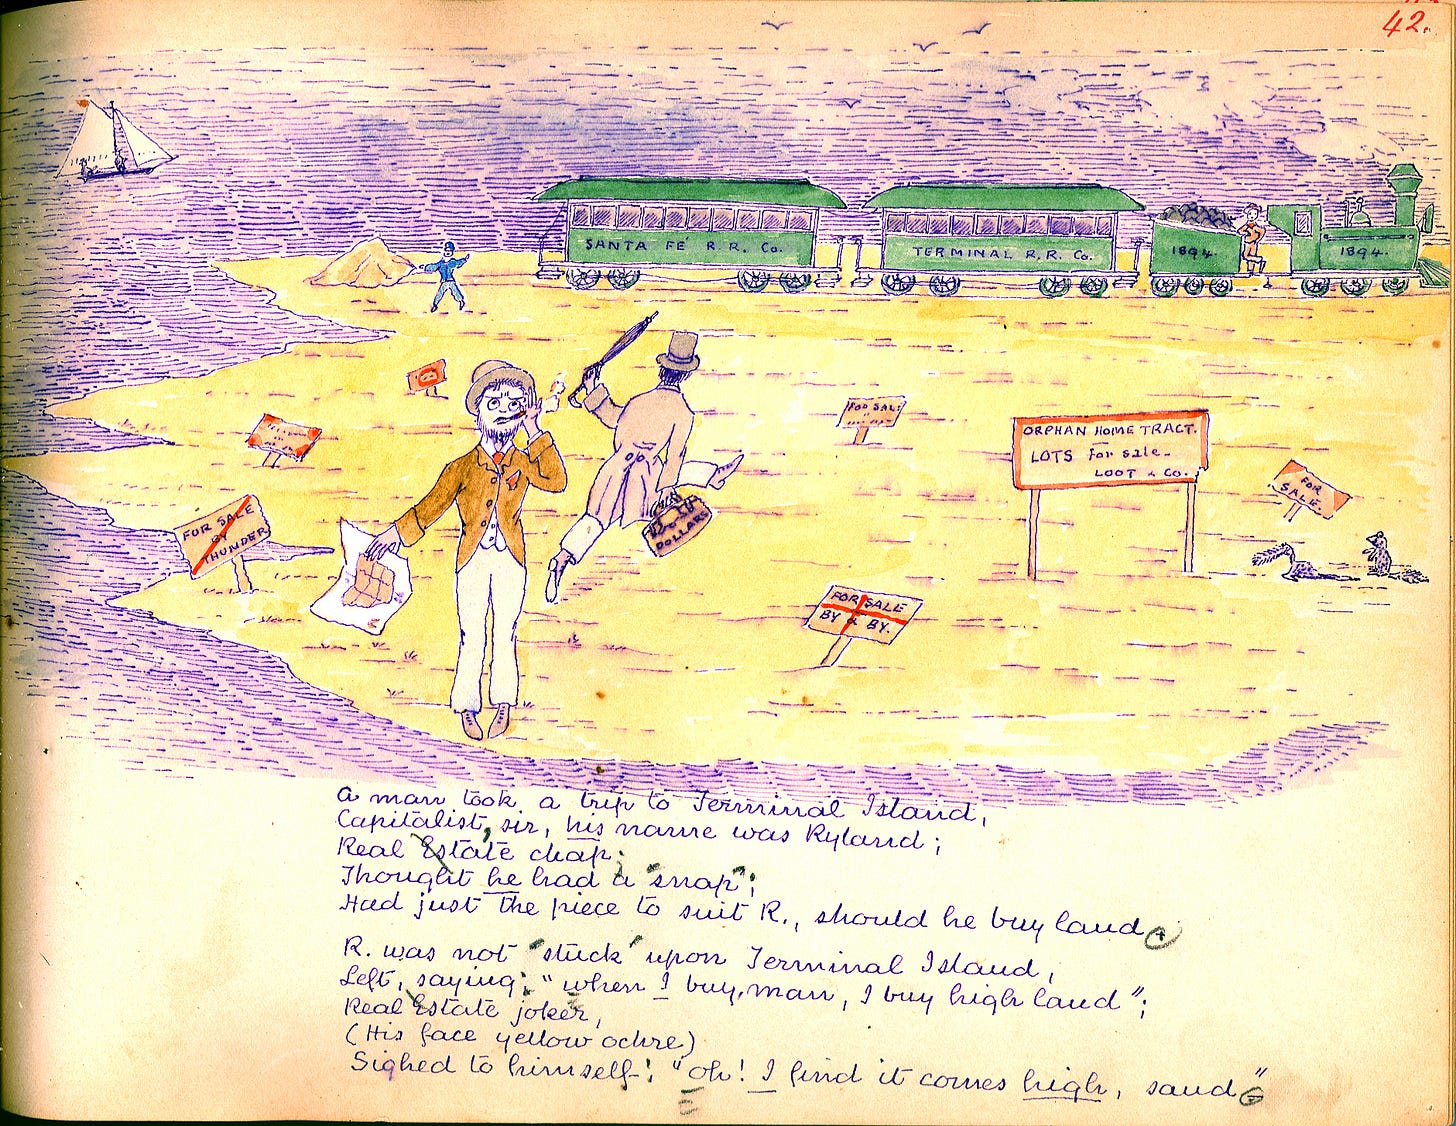 42.
SANTA FÉ R. R. Co.
TERMINAL R. R. Co.
1894.
1894.
FOR SALE
FOR SALE
BY
THUNDER
ORPHAN HOME TRACT.
LOTS for sale.
LOOT & Co.
FOR
SALE.
DOLLARS
FOR SALE
BY & BY.
A man took a trip to Terminal Island,
Capitalist, sir, his name was Ryland;
Real Estate chap;
Thought he had a "snap";
Had just the piece to suit R., should he buy land.
R. was not "stuck" upon Terminal Island,
Left, saying: "when I buy, man, I buy high land";
Real Estate joker,
(His face yellow ochre)
Sighed to himself: "oh! I find it comes high, sand"